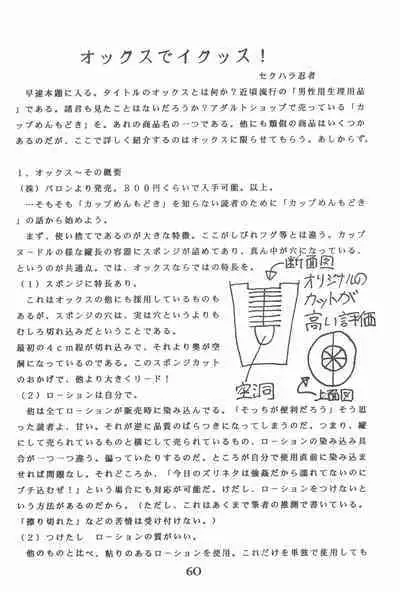 オックスでイクッス！
セクハラ忍者
早速本題に入る。タイトルのオックスとは何か？近頃流行の「男性用生理用品」である。諸君も見たことはないだろうか？アダルトショップで売っている「カップめんもどき」を。あれの商品名の一つである。他にも類似の商品はいくつかあるのだが、ここで詳しく紹介するのはオックスに限らせてもらう。あしからず。
1、オックス～その概要
（株）バロンより発売。８００円くらいで入手可能。以上。
…そもそも「カップめんもどき」を知らない読者のために「カップめんもどき」の話から始めよう。
まず、使い捨てであるのが大きな特徴。ここがしびれフグ等とは違う。カップヌードルの様な縦長の容器にスポンジが詰めてあり、真ん中が穴になっている、というのが共通点。では、オックスならではの特長を。
（１）スポンジに特長あり。
これはオックスの他にも採用しているものもあるが、スポンジの穴は、実は穴というよりもむしろ切れ込みだということである。
最初の４ｃｍ程が切れ込みで、それより奥が空洞になっているのである。このスポンジカットのおかげで、他より大きくリード！
断面図
オリジナルの
カットが
高い評価
空洞
上面図
（２）ローションは自分で。
他は全てローションが販売時に染み込んでる。「そっちが便利だろう」そう思った読者よ、甘い。それが逆に品質のばらつきになってしまうのだ。つまり、縦にして売られているものと横にして売られているもの、ローションの染み込み具合が一つ一つ違う。偏っていたりするのだ。ところが自分で使用直前に染み込ませれば問題なし。それどころか、「今日のズリネタは強姦だから濡れてないのにブチ込むぜ！」という場合にも対応が可能だ。けだし、ローションをつけないという方法があるのだから。（ただし、これはあくまで筆者の推測で書いている。「擦り切れた」などの苦情は受け付けない。）
（２）つけたし　ローションの質がいい。
他のものと比べ、粘りのあるローションを使用。これだけを単独で使用しても
60